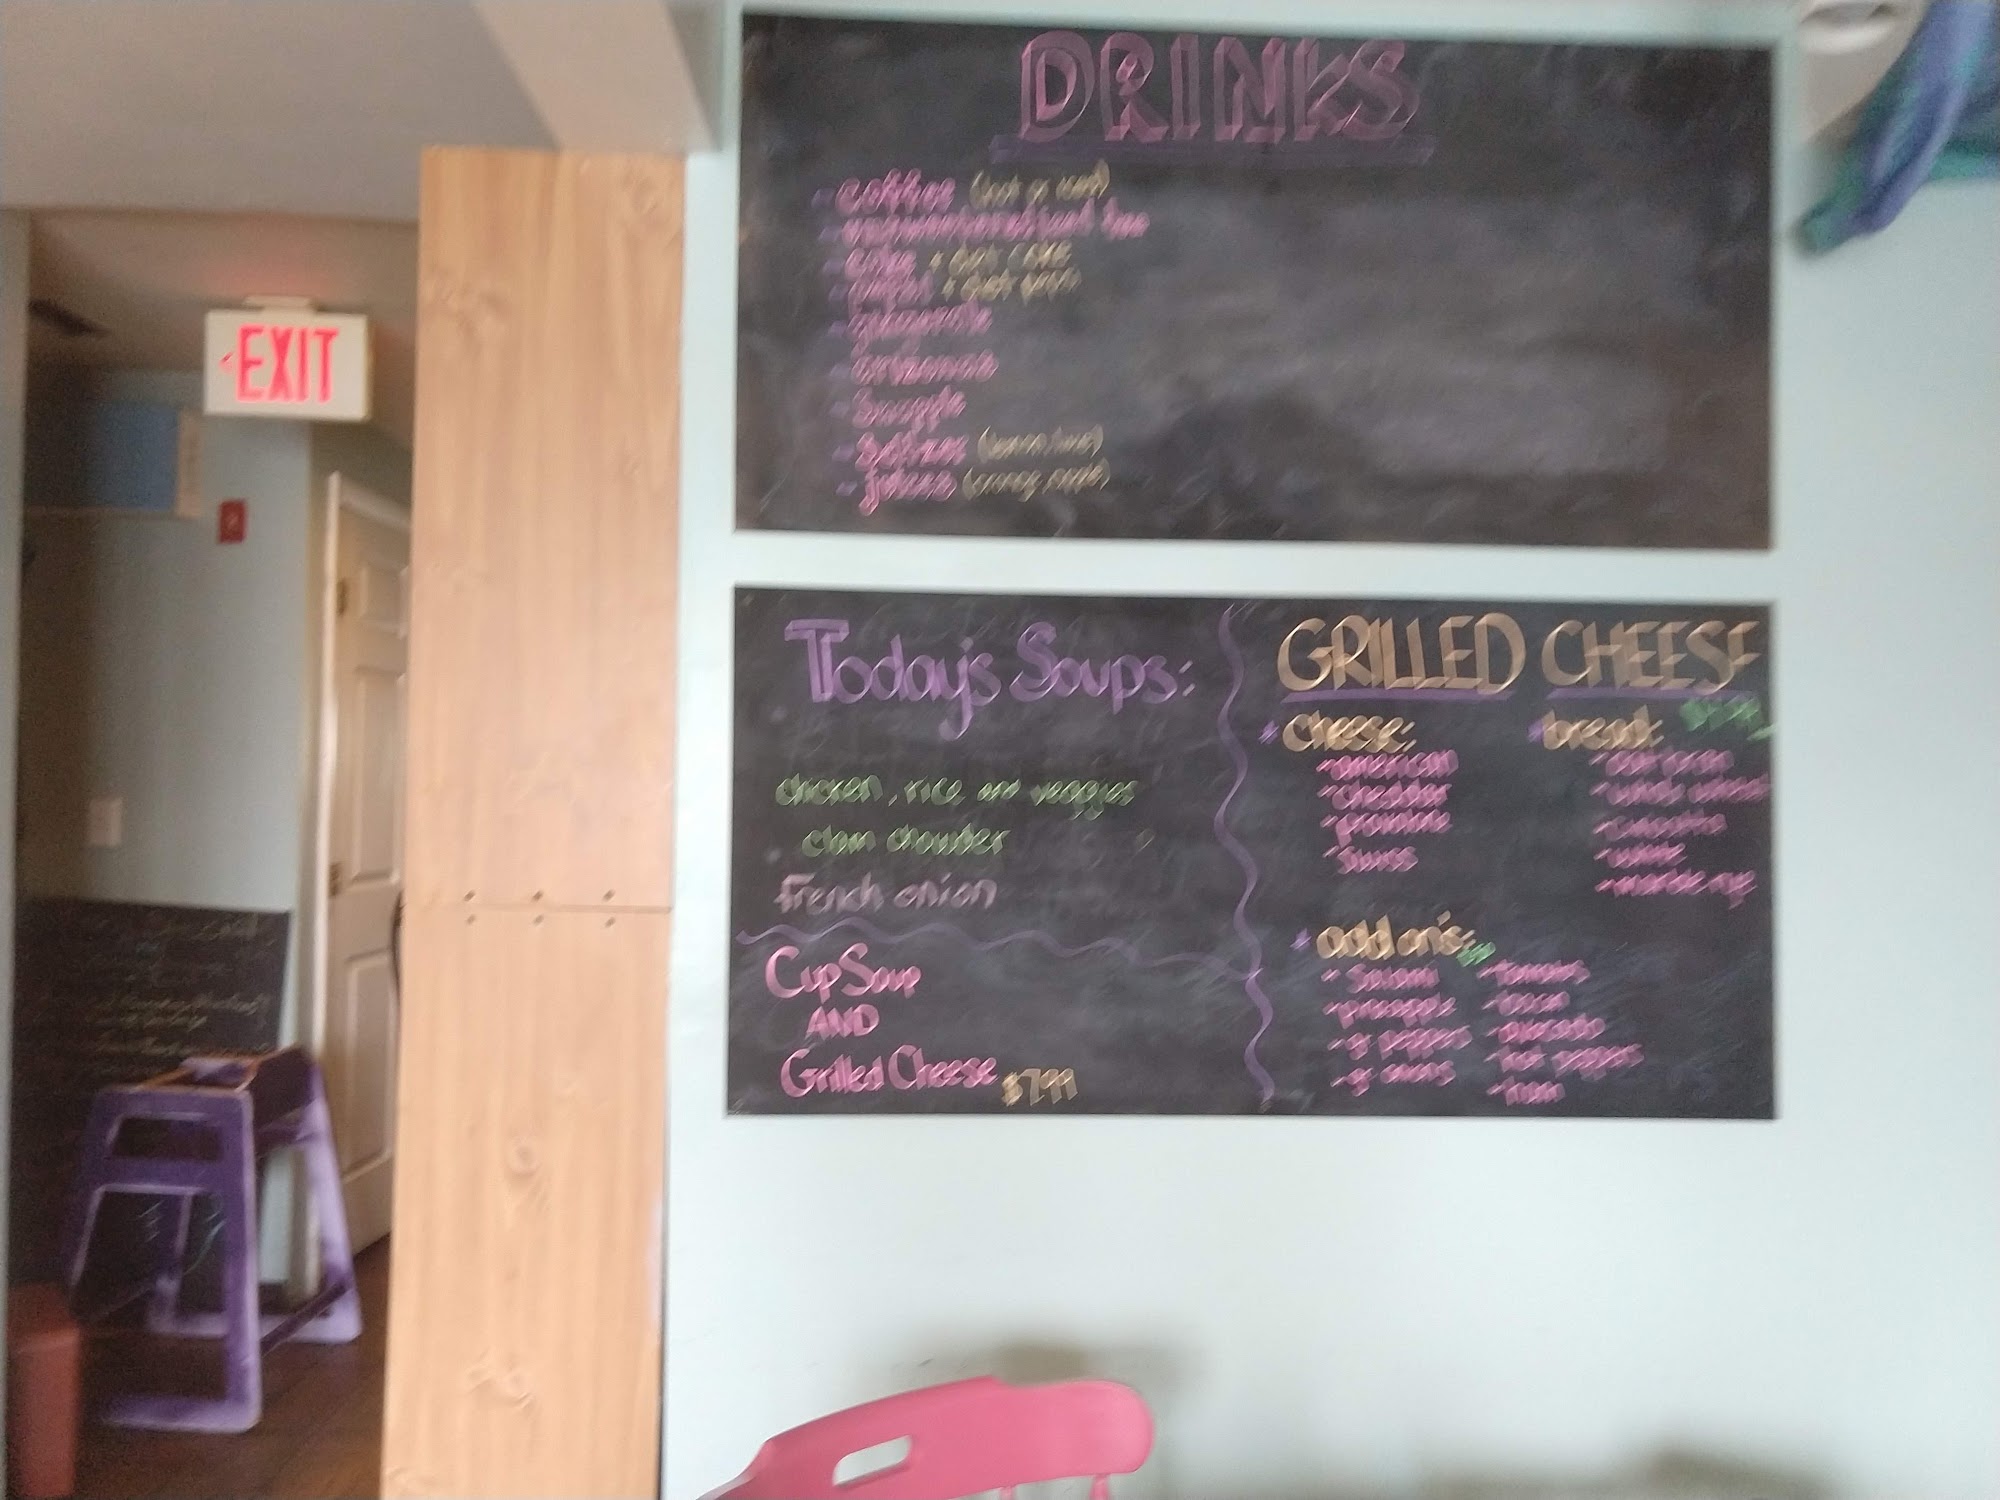 EXIT
DRINKS
- coffee (hot or iced)
- coke + diet coke
- pepsi + diet pepsi
- gingerale
- arizona
- Snapple
- Seltzer (lemon, lime)
- juices (orange, apple)
Today's Soups:
chicken, rice and veggies
clam chowder
french onion
Cup Soup
AND
Grilled Cheese $7.99
GRILLED CHEESE
* cheese:
- american
- cheddar
- provolone
- Swiss
* bread:
- whole wheat
- Ciabatta
- white
- marble rye
* add on's:
- Salami
- pineapple
- gr peppers
- gr onions
- tomatos
- bacon
- avocado
- hot peppers
- ham